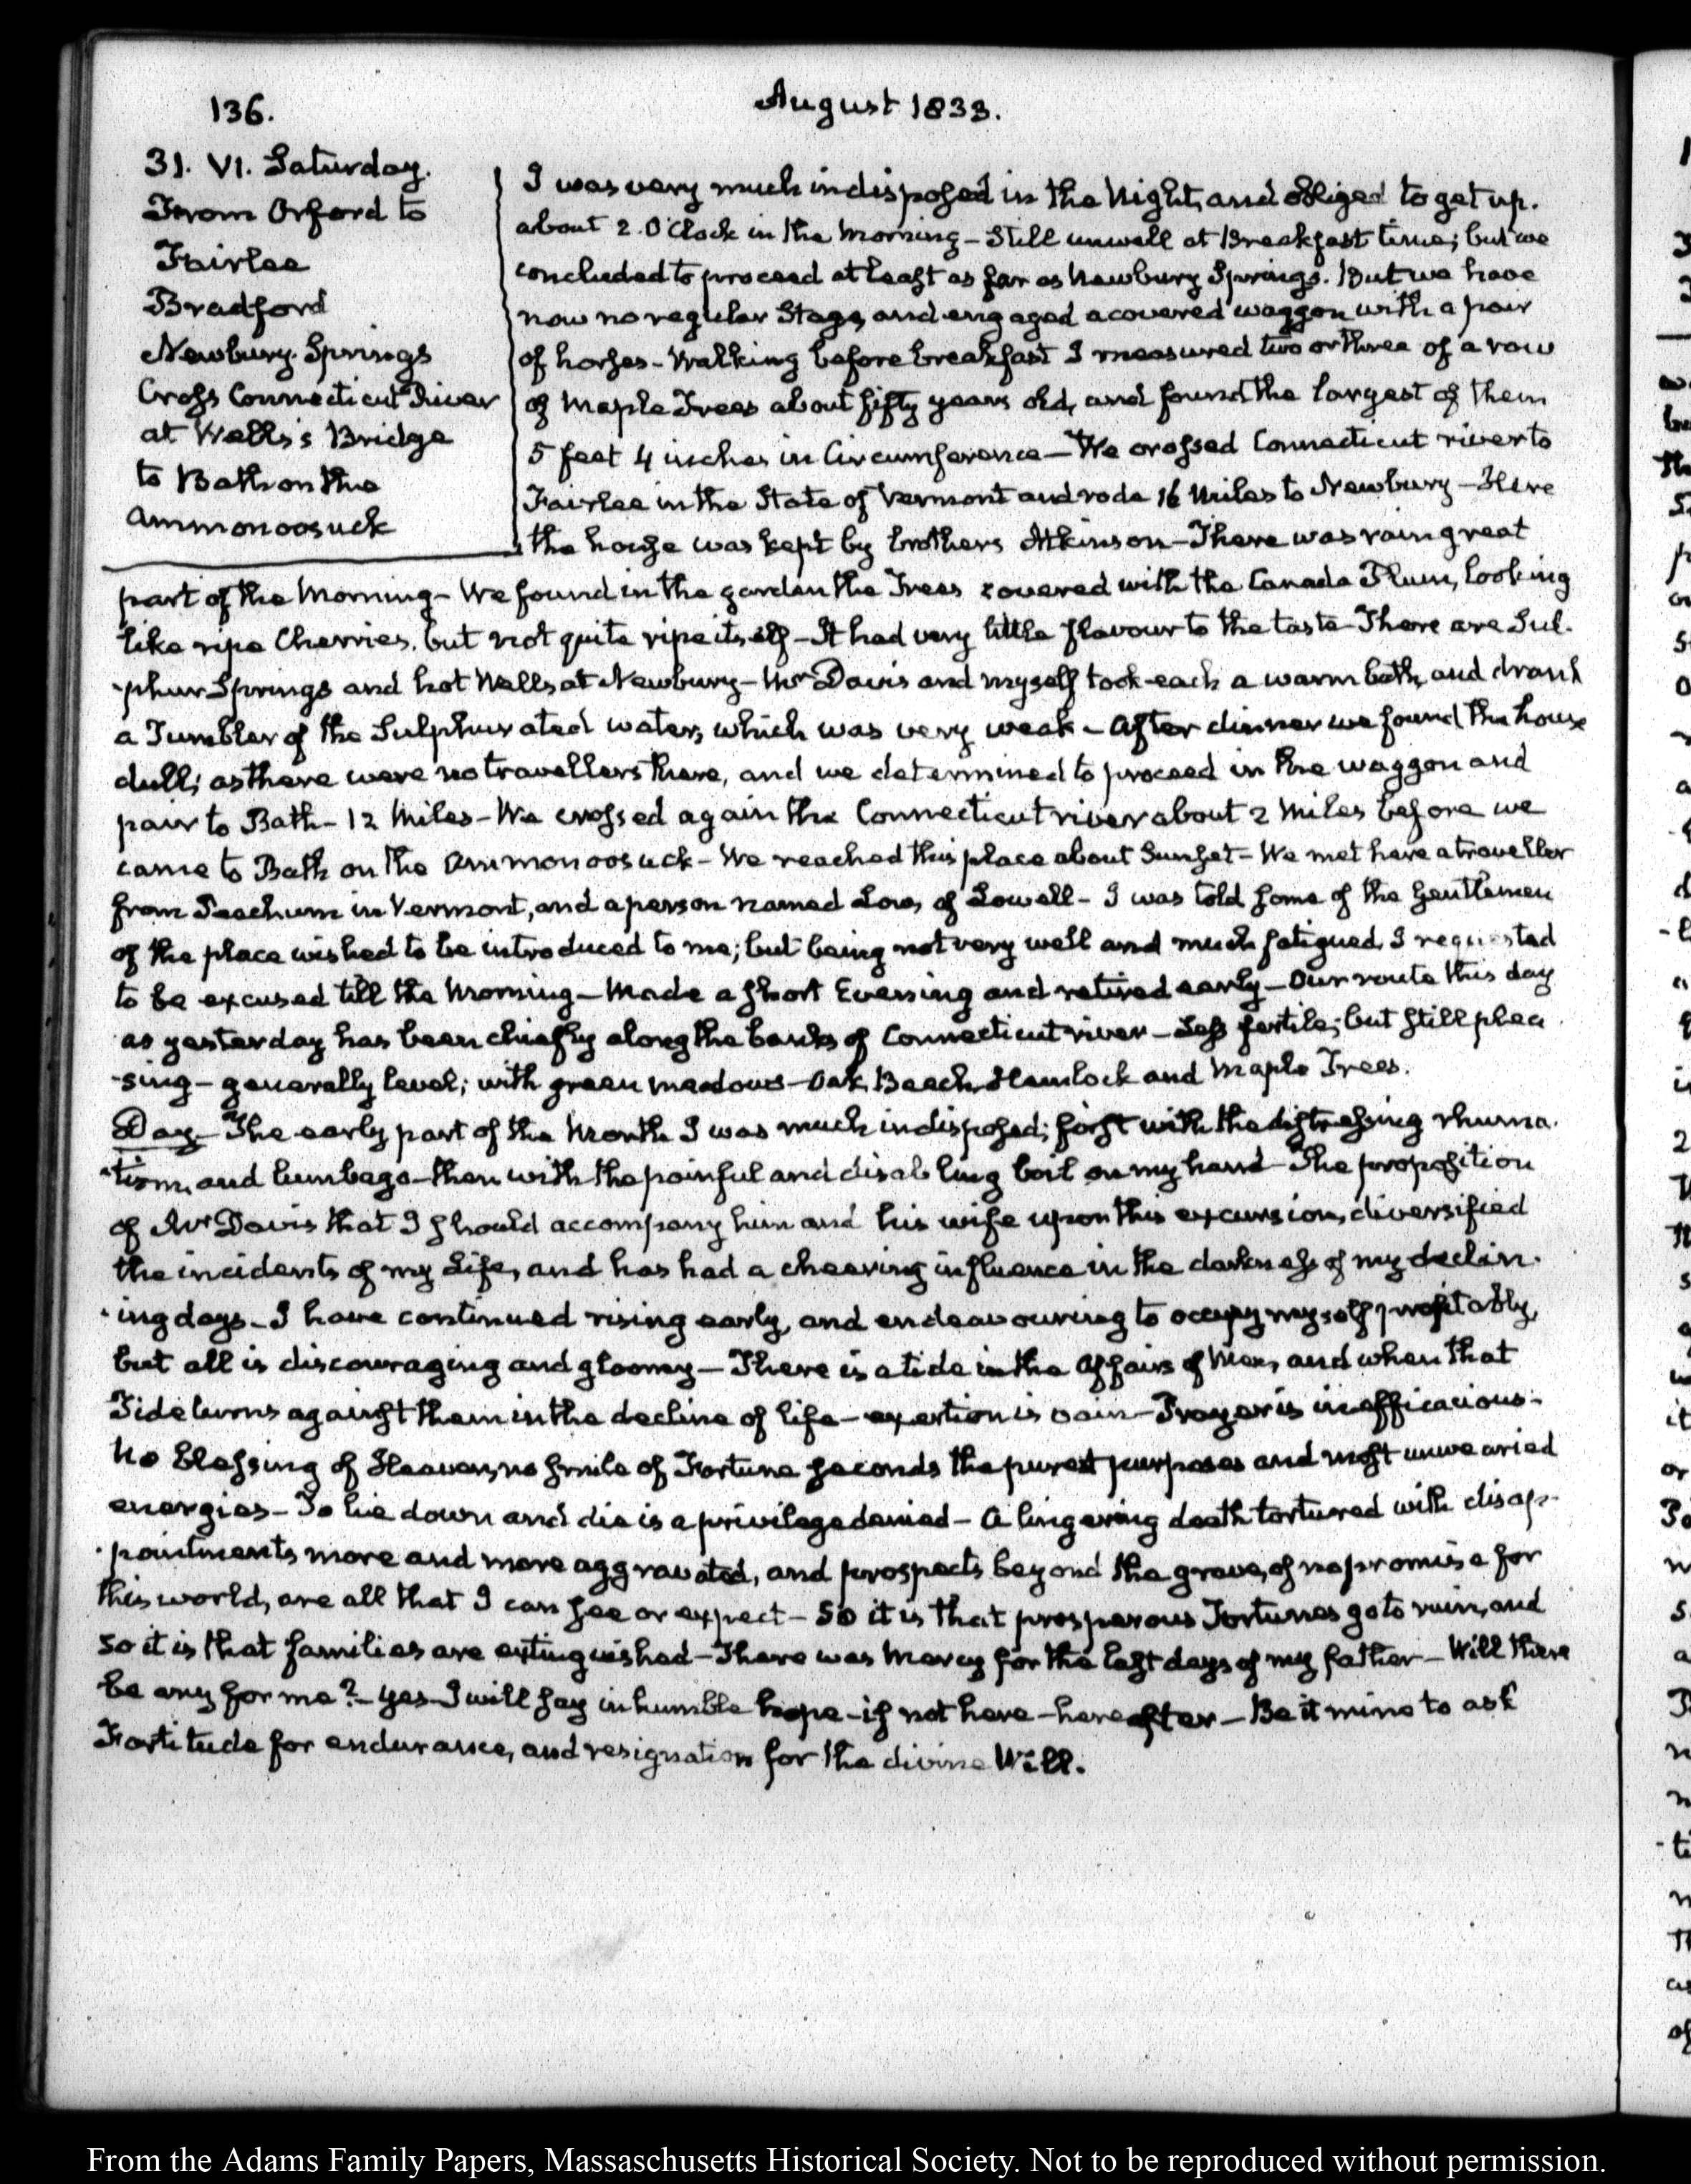 136.
August 1833.
31. VI. Saturday.
From Orford to
Fairlee
Bradford
Newbury Springs
Cross Connecticut River
at Wells's Bridge
to Bath on the
Ammonoosuck
I was very much indisposed in the Night, and obliged to get up.
about 2. O'Clock in the Morning – Still unwell at Breakfast time; but we
concluded to proceed at least as far as Newbury Springs. But we have
now no regular Stage, and engaged a covered waggon with a pair
of horses – Walking before breakfast I measured two or three of a row
of Maple Trees about fifty years old, and found the largest of them
5 feet 4 inches in Circumference – We crossed Connecticut river to
Fairlee in the State of Vermont and rode 16 Miles to Newbury – Here
the house was kept by brothers Atkinson – There was rain great
part of the Morning – We found in the garden the Trees covered with the Canada Plum, looking
like ripe Cherries, but not quite ripe itself – It had very little flavour to the taste – There are Sul-
-phur Springs and hot Wells at Newbury – Mr Davis and myself took each a warm bath, and drank
a Tumbler of the Sulphurated water, which was very weak – After dinner we found the house
dull; as there were no travellers there, and we determined to proceed in the waggon and
pair to Bath – 12 Miles – We crossed again the Connecticut river about 2 Miles before we
came to Bath on the Ammonoosuck – We reached this place about Sunset – We met here a traveller
from Peachum in Vermont, and a person named Low, of Lowell – I was told some of the Gentlemen
of the place wished to be introduced to me; but being not very well and much fatigued, I requested
to be excused till the Morning – Made a short Evening and retired early – Our route this day
as yesterday has been chiefly along the banks of Connecticut river – Less fertile; but still plea
-sing – generally level; with green meadows – Oak, Beech, Hemlock and Maple Trees.
Day – The early part of the Month I was much indisposed; first with the distressing rhuma-
-tism, and lumbago – then with the painful and disabling boil on my hand – The proposition
of Mr Davis that I should accompany him and his wife upon this excursion, diversified
the incidents of my Life, and has had a cheering influence in the darkness of my declin-
-ing days – I have continued rising early, and endeavouring to occupy myself profitably,
but all is discouraging and gloomy – There is a tide in the Affairs of Men, and when that
Tide turns against them in the decline of life – exertion is vain – Prayer is inefficacious –
No Blessing of Heaven, no smile of Fortune seconds the purest purposes and most unwearied
energies – To lie down and die is a privilege denied – A lingering death tortured with disap-
-pointments more and more aggravated, and prospects beyond the grave, of no promise for
this world, are all that I can see or expect – So it is that prosperous Fortunes go to ruin, and
so it is that families are extinguished – There was Mercy for the last days of my father – Will there
be any for me? – Yes – I will say in humble hope – if not here – hereafter – Be it mine to ask
Fortitude for endurance, and resignation for the divine Will.
From the Adams Family Papers, Massachusetts Historical Society. Not to be reproduced without permission.